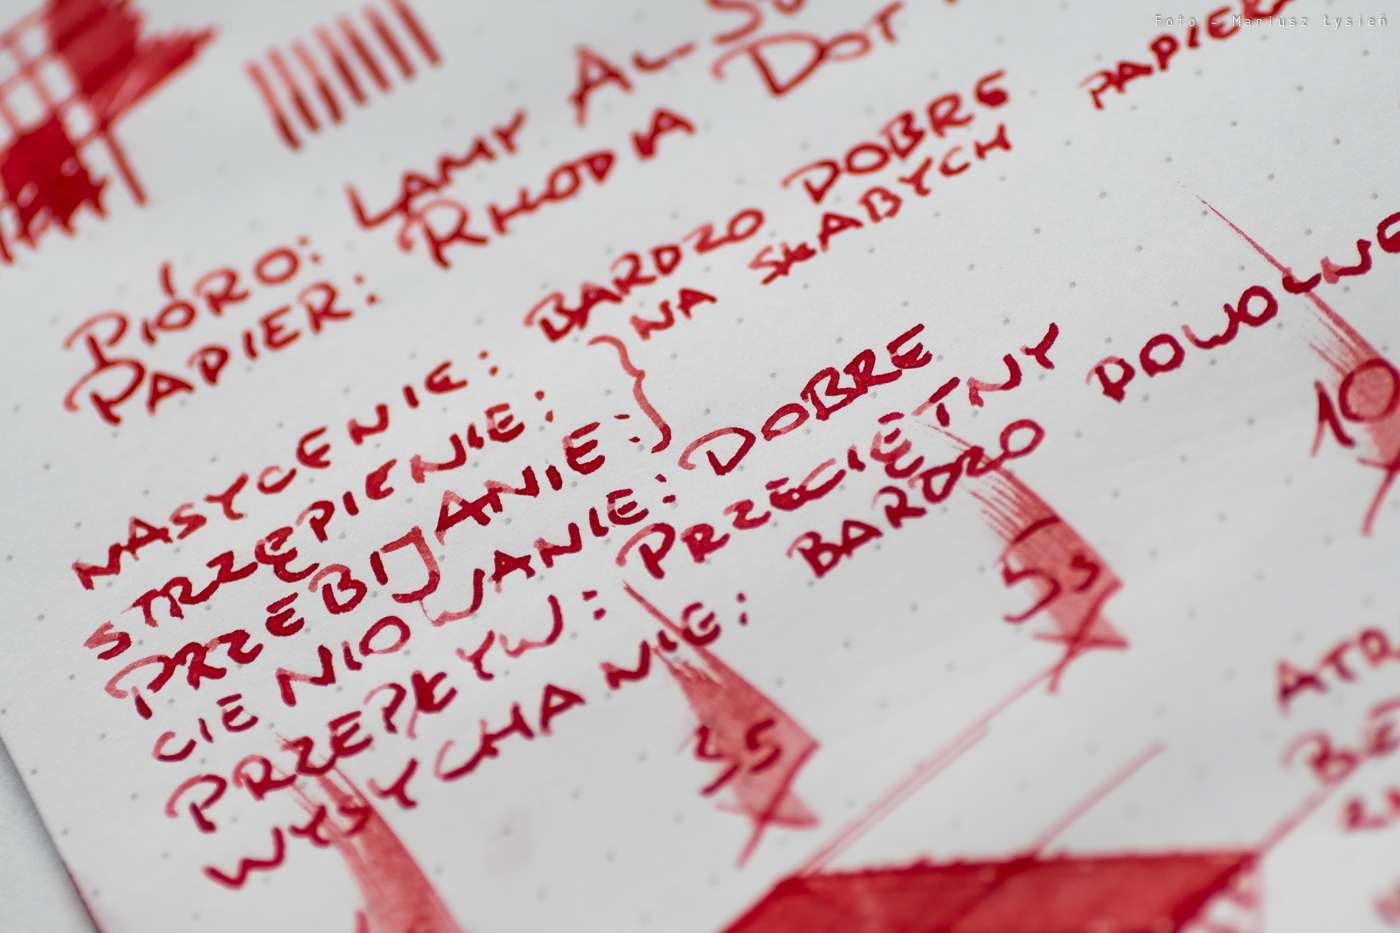 Foto - Mariusz Łysień
PIÓRO: LAMY AL-
PAPIER: RHODIA DOT
NASYCENIE: BARDZO DOBRE
STRZĘPIENIE: NA SŁABYCH
PRZEBIJANIE:
CIENIOWANIE: DOBRE
PRZEPŁYW: PRZECIĘTNY
WYSYCHANIE: BARDZO POWOLNE
10
5s